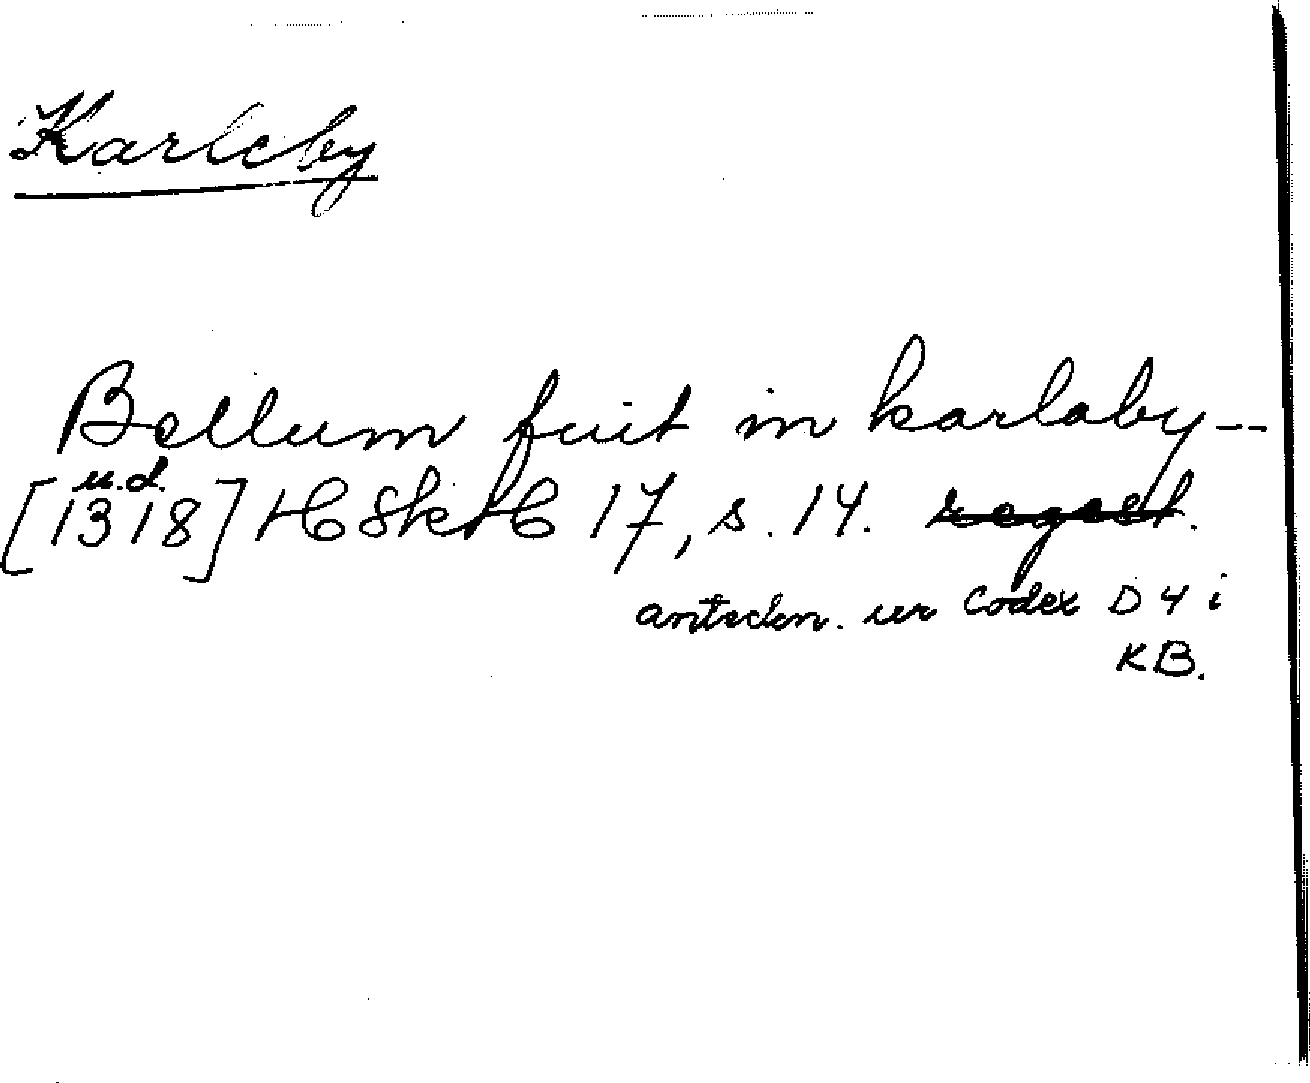 Karleby
Bellum fuit in karlaby--
u.d.
[1318] HSkH 17, s. 14. regest.
anteckn. ur Codex D 4 i
KB.